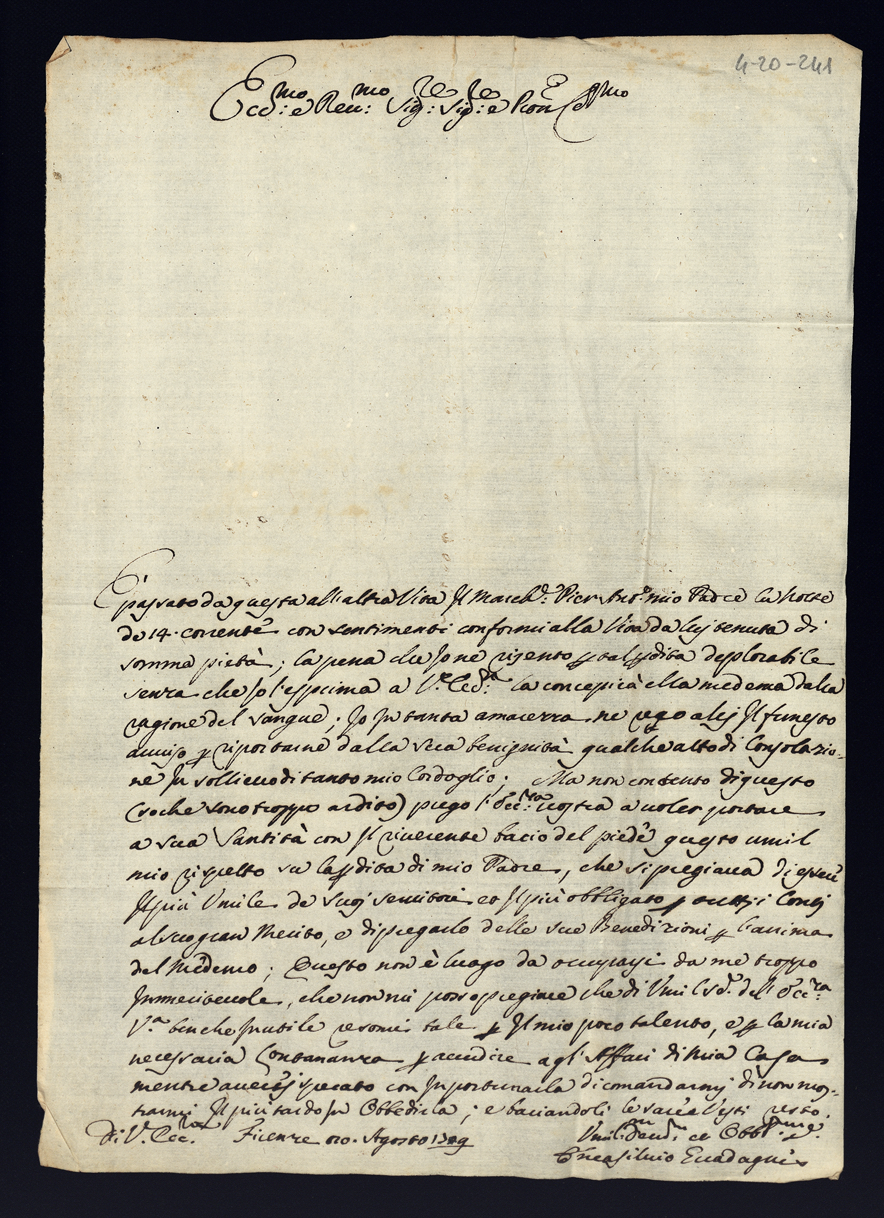 4-20-241
Ecc:mo e Reu:mo Sig:re Sig:re e Pron Col:mo
È passato da questa all'altra Vita Il March.e Pier Ant.o mio Padre la Notte
de 14. corrente con sentimenti conformi alla Vita da lui tenuta di
somma pietà; la pena che Io ne risento p tal pdita deplorabile
senza che Io l'esprima a V.a Ecc:a la concepirà ella medema dalla
ragione del sangue; Io In tanta amarezza ne reco a lei Il funesto
auuiso p riportarne dalla sua benignità qualche atto di Consolazio-
ne In sollieuo di tanto mio Cordoglio; Ma non contento di questo
(so che sono troppo ardito) prego l'Ecc:za uostra a uoler portare
a sua Santità con Il riuerente bacio del piede questo umil
mio rispetto su la pdita di mio Padre, che si pregiaua di essere
Il più Umile de suoi seruitori et Il più obbligato p tutti i Conti
al suo gran Merito, e di pregarlo delle sue Benedizioni p l'anima
del Medemo; Questo non è luogo da occuparsi da me troppo
Immeriteuole, che non mi posso pregiare che di Umil s.re dell'Ecc:za
V.a benche Inutile resomi tale p Il mio poco talento, e p la mia
necessaria Lontananza p accudire agl'Affari di mia Casa
mentre auerei sperato con Inportunarla di comandarmi di non mos-
trarmi Il più tardo In Obbedirla; e baciandoli le sacre Vesti resto.
Di V.a Ecc.za Firenze 20. Agosto 1709
Umil.mo Deu.mo et Obb.mo Se.
Enea Siluio Guadagni